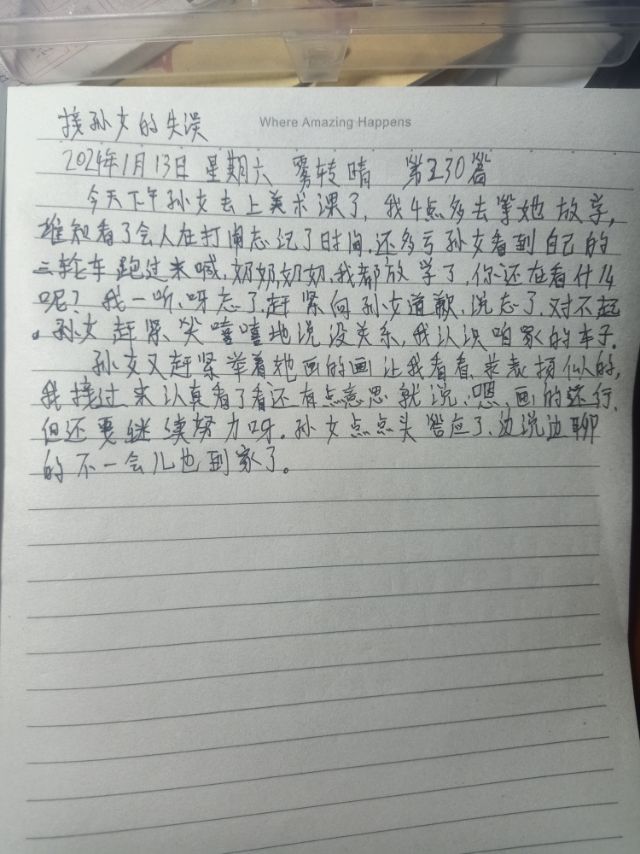 Where Amazing Happens
接孙女的失误
2024年1月13日 星期六 雾转晴 第230篇
今天下午孙女去上美术课了，我4点多去等她放学，
谁知看了会人在打闹忘记了时间、还多亏孙女看到自己的
三轮车跑过来喊、奶奶，奶奶、我都放学了，你还在看什么
呢？我一听、呀忘了、赶紧向孙女道歉、说忘了、对不起
。孙女赶紧、笑嘻嘻地说没关系，我认识咱家的车子.
孙女又赶紧举着她画的画让我看看、 的，
我接过来认真看了看还有点意思就说、嗯、画的还行、
但还要继续努力呀。孙女点点头答应了、边说边聊
的不一会儿也到家了。